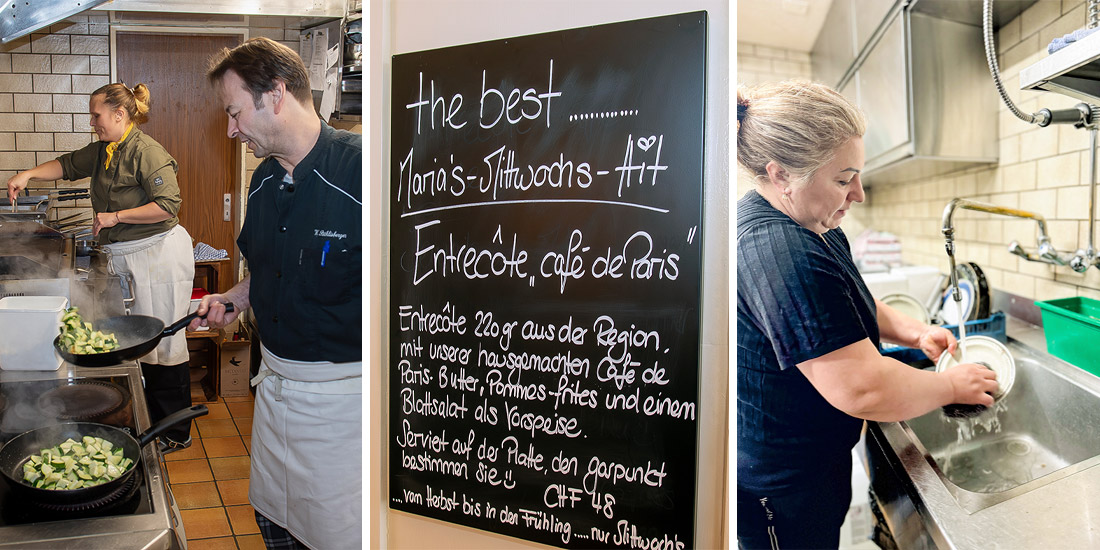 the best ............
Maria's-Mittwochs-Hit
Entrecôte „café de Paris"
Entrecôte 220gr aus der Region,
mit unserer hausgemachten Café de
Paris-Butter, Pommes-frites und einem
Blattsalat als Vorspeise.
Serviert auf der Platte, den garpunkt
bestimmen Sie
CHF 48
....vom Herbst bis in den Frühling.....nur Mittwoch's